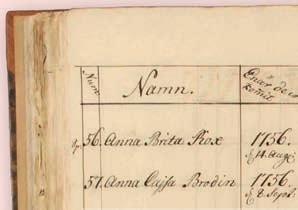 Num. Namn.
56. Anna Brita Rox 1756.
14. Aug:
57. Anna Cajsa Brodin 1756.
8. Sept.